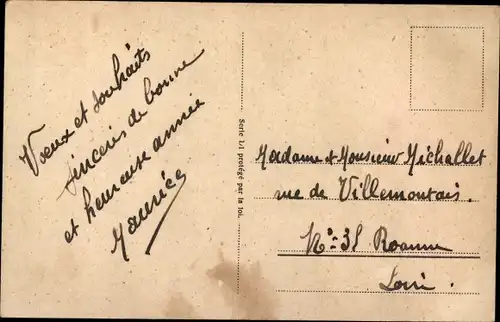 Voeux et souhaits
sincères de bonne
et heureuse année
Maurice
Serie 1/1 protégé par la loi.
Madame et Monsieur Michallet
rue de Villemontais.
N°= 31 Roanne
Loire.